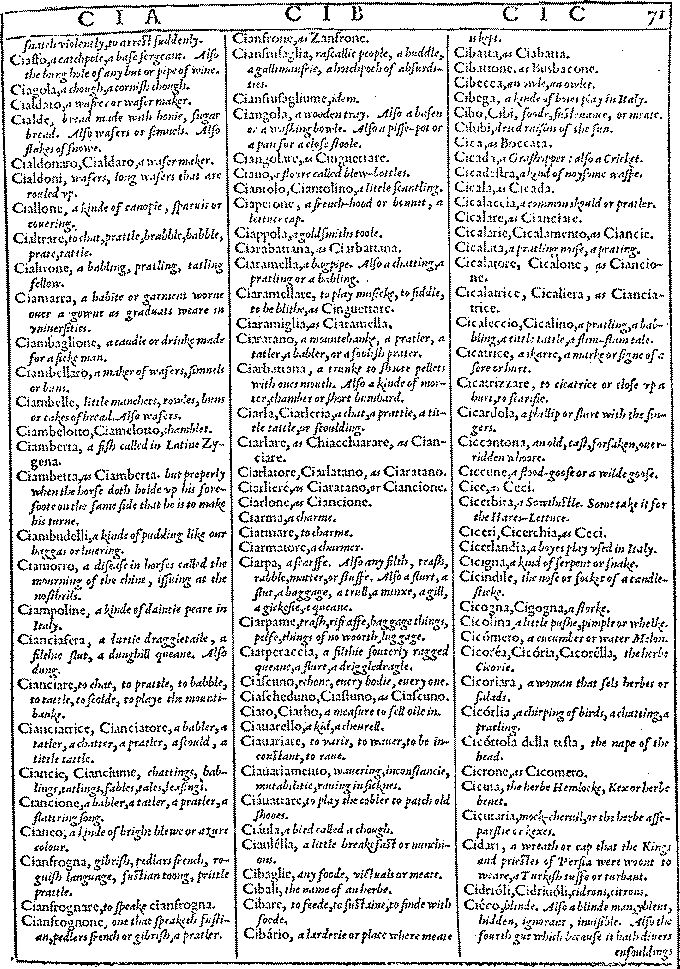 C I A C I B C I C 71
snatch violently, to arrest suddenly.
Ciaffo, a catchpole, a base sergeant. Also
the bung hole of any but or pipe of wine.
Ciagola, a chough, a cornish chough.
Cialdaro, a wafrer or wafer maker.
Cialde, bread made with honie, sugar
bread. Also wafers or simnels. Also
flakes of snowe.
Cialdonaro, Cialdaro, a wafer maker.
Cialdoni, wafers, long wafers that are
rouled vp.
Ciallone, a kinde of canopie, sparuis or
couering.
Cialtrare, to chat, prattle, brabble, babble,
prate, tattle.
Cialtrone, a babling, pratling, tatling
fellow.
Ciamarra, a habite or garment worne
ouer a gowne as graduats weare in
vniuersities.
Ciambaglione, a caudle or drinke made
for a sicke man.
Ciambellaro, a maker of wafers, simnels
or buns.
Ciambelle, little manchets, rowles, buns
or cakes of bread. Also wafers.
Ciambelotto, Ciamelotto, chamblet.
Ciamberta, a fish called in Latine Zy-
gena.
Ciambetta, as Ciamberta. but properly
when the horse doth holde vp his fore-
foote on the same side that he is to make
his turne.
Ciambudelli, a kinde of pudding like our
haggas or
Ciamorro, a disease in horses called the
mourning of the chine, issuing at the
nosthrils.
Ciampoline, a kinde of daintie peare in
Italy.
Cianciafera, a sluttie draggletaile, a
filthie slut, a dunghill queane. Also
dung.
Cianciare, to chat, to prattle, to babble,
to tattle, to scolde, to playe the mounti-
banke.
Cianciatrice, Cianciatore, a babler, a
tatler, a chatter, a pratler, a scould, a
tittle tattle.
Ciancie, Cianciume, chattings, bab-
lings, tatlings, fables, tales, leasings.
Ciancione, a babler, a tatler, a pratler, a
flattring song.
Cianco, a kinde of bright blewe or azure
colour.
Cianfrogna, gibrish, pedlars french, ro-
guish language, fustian toong, prittle
prattle.
Cianfrognare, to speake cianfrogna.
Cianfrognone, one that speaketh fusti-
an, pedlers french or gibrish, a pratler.
Cianfrone, as Zanfrone.
Cianfrusaglia, rascallie people, a huddle,
a gallimaufrie, a hotchpoch of absurdi-
ties.
Cianfrusagliume, idem.
Ciangola, a wooden tray. Also a basen
or a washing bowle. Also a pisse-pot or
a pan for a close stoole.
Ciangolare, as Cinguettare.
Ciano, a flowre called blew-bottles.
Ciantolo, Ciantolino, a little scantling.
Ciaperone, a french-hood or bonnet, a
lettuce cap.
Ciappola, a goldsmiths toole.
Ciarabattana, as Ciarbattana.
Ciaramella, a bagpipe. Also a chatting, a
pratling or a babling.
Ciaramellare, to play musicke, to fiddle,
to be blithe, as Cinguettare.
Ciaramiglia, as Ciaramella.
Ciaratano, a mountebanke, a pratler, a
tatler, a babler, or a foolish prater.
Ciarbattana, a trunke to shoote pellets
with ones mouth. Also a kinde of mor-
ter, chamber or short bumbard.
Ciarla, Ciarleria, a chat, a prattle, a tit-
tle tattle, or scoulding.
Ciarlare, as Chiacchiarare, as Cian-
ciare.
Ciarlatore, Ciarlatano, as Ciaratano.
Ciarliere, as Ciaratano, or Ciancione.
Ciarlone, as Ciancione.
Ciarma, a charme.
Ciarmare, to charme.
Ciarmatore, a charmer.
Ciarpa, a scarffe. Also any filth, trash,
rubbie, matter, or stuffe. Also a flurt, a
slut, a baggage, a trull, a minxe, a gill,
a gicksie, a queane.
Ciarpame, trash, riffraffe, baggage things,
pelfe, things of no woorth, luggage.
Ciarperaccia, a filthie souterly ragged
queane, a flurt, a driggledragle.
Ciascuno, echone, euery bodie, euery one.
Ciascheduno, Ciastuno, as Ciascuno.
Ciato, Ciatho, a measure to sell oile in.
Ciauarello, a kid, a cheurell.
Ciauariare, to varie, to wauer, to be in-
constant, to raue.
Ciauariamento, wauering, inconstancie,
mutabilitie, rauing in sicknes.
Ciáuattare, to play the cobler to patch old
shooes.
Ciáula, a bird called a chough.
Cianlélla, a little breakfast or nunchi-
ons.
Cibaglie, any foode, victuals or meate.
Cibali, the name of an herbe.
Cibare, to feede, to sustaine, to finde with
foode.
Cibário, a larderie or place where meate
is kept.
Cibatta, as Ciabatta.
Cibattone, as Busbacone.
Cibecca, an owle, an owlet.
Cibega, a kinde of boyes play in Italy.
Cibo, Cibi, foode, sustenance, or meate.
Cibibi, dried raisins of the sun.
Cica, as Boccata.
Cicada, a Grashopper: also a Cricket.
Cicadastra, a kind of noysome waspe.
Cicala, as Cicada.
Cicalaccia, a common should or pratler.
Cicalare, as Cianciare.
Cicalarie, Cicalamento, as Ciancie.
Cicalata, a pratling noise, a prating.
Cicalatore, Cicalone, as Ciancio-
ne.
Cicalatrice, Cicaliera, as Ciancia-
trice.
Cicaleccio, Cicalino, a pratling, a bab-
bling, a tittle tattle, a flim-flam tale.
Cicatrice, a skarre, a marke or signe of a
sore or hurt.
Cicatrizzare, to cicatrice or close vp a
hurt, to scarifie.
Cicardola, a phillip or flurt with the fin-
gers.
Ciccantona, an old, cast, forsaken, ouer-
ridden whoore.
Ciccune, a flood-goose or a wilde goose.
Cice, as Ceci.
Cicerbita, a Sowthistle. Some take it for
the Hares-Lettuce.
Ciceri, Cicerchia, as Ceci.
Cicerlandia, a boyes play vsed in Italy.
Cicigna, a kind of serpent or snake.
Cicindile, the nose or socket of a candle-
sticke.
Cicogna, Cigogna, a storke.
Cicolina, a little pushe, pimple or whelke.
Cicómero, a cucumber or water Melon.
Cicoréa, Cicória, Cicorélla, the herbe
Cicorie.
Cicoriara, a woman that sels herbes or
salads.
Cicórlia, a chirping of birds, a chatting, a
pratling.
Cicóttola della testa, the nape of the
head.
Cicrone, as Cicomero.
Cicuta, the herbe Hemlocke, Kex or herbe
benet.
Cicutaria, mock-cheruil, or the herbe asse-
parslie or kexes.
Cidari, a wreath or cap that the Kings
and priestes of Persia were woont to
weare, a Turkish tuffe or turbant.
Cidrióli, Cidriuóli, cidrons, citrons.
Ciéco, blinde. Also a blinde man, yblent,
hidden, ignorant, inuisible. Also the
fourth gut which because it hath diuers
enfouldings